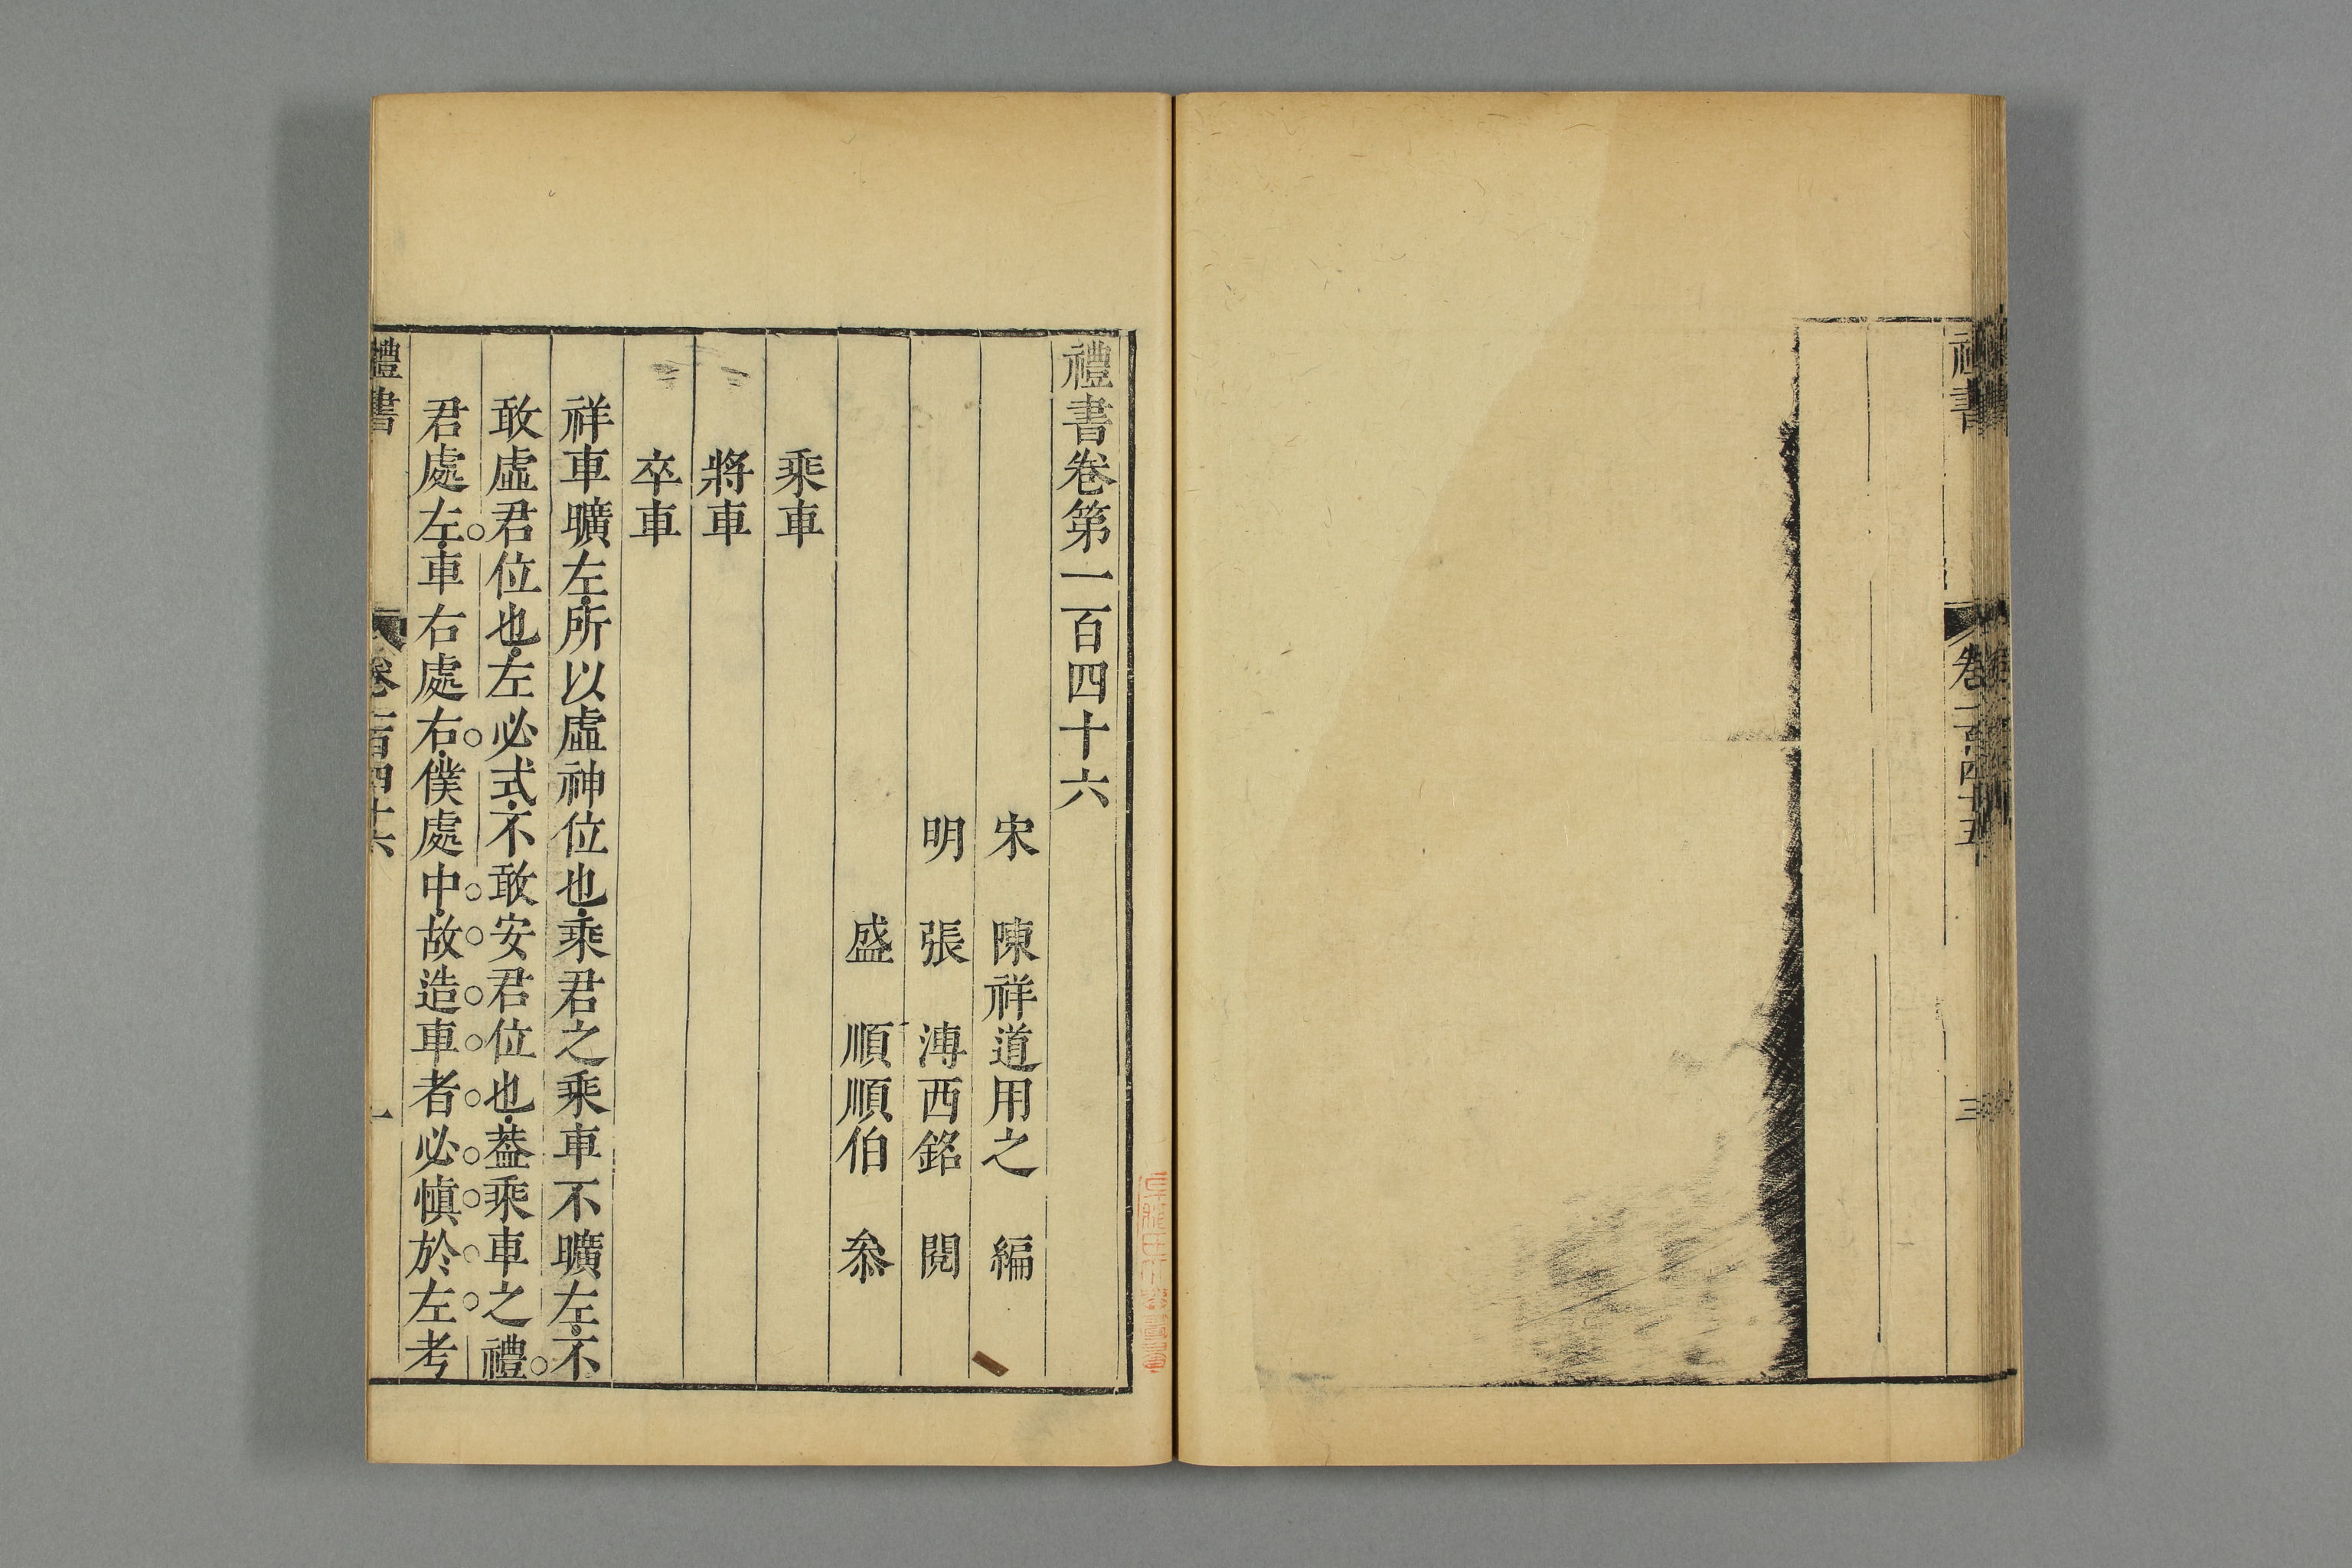 禮書
卷一百四十五
三
禮書卷第一百四十六
宋 陳祥道用之 編
明 張 溥西銘 閱
盛 順順伯 叅
乘車
將車
卒車
祥車曠左所以虛神位也乘君之乘車不曠左不
敢虛君位也左必式不敢安君位也葢乘車之禮
君處左車右處右僕處中故造車者必慎於左考
禮書
卷一百四十六
一